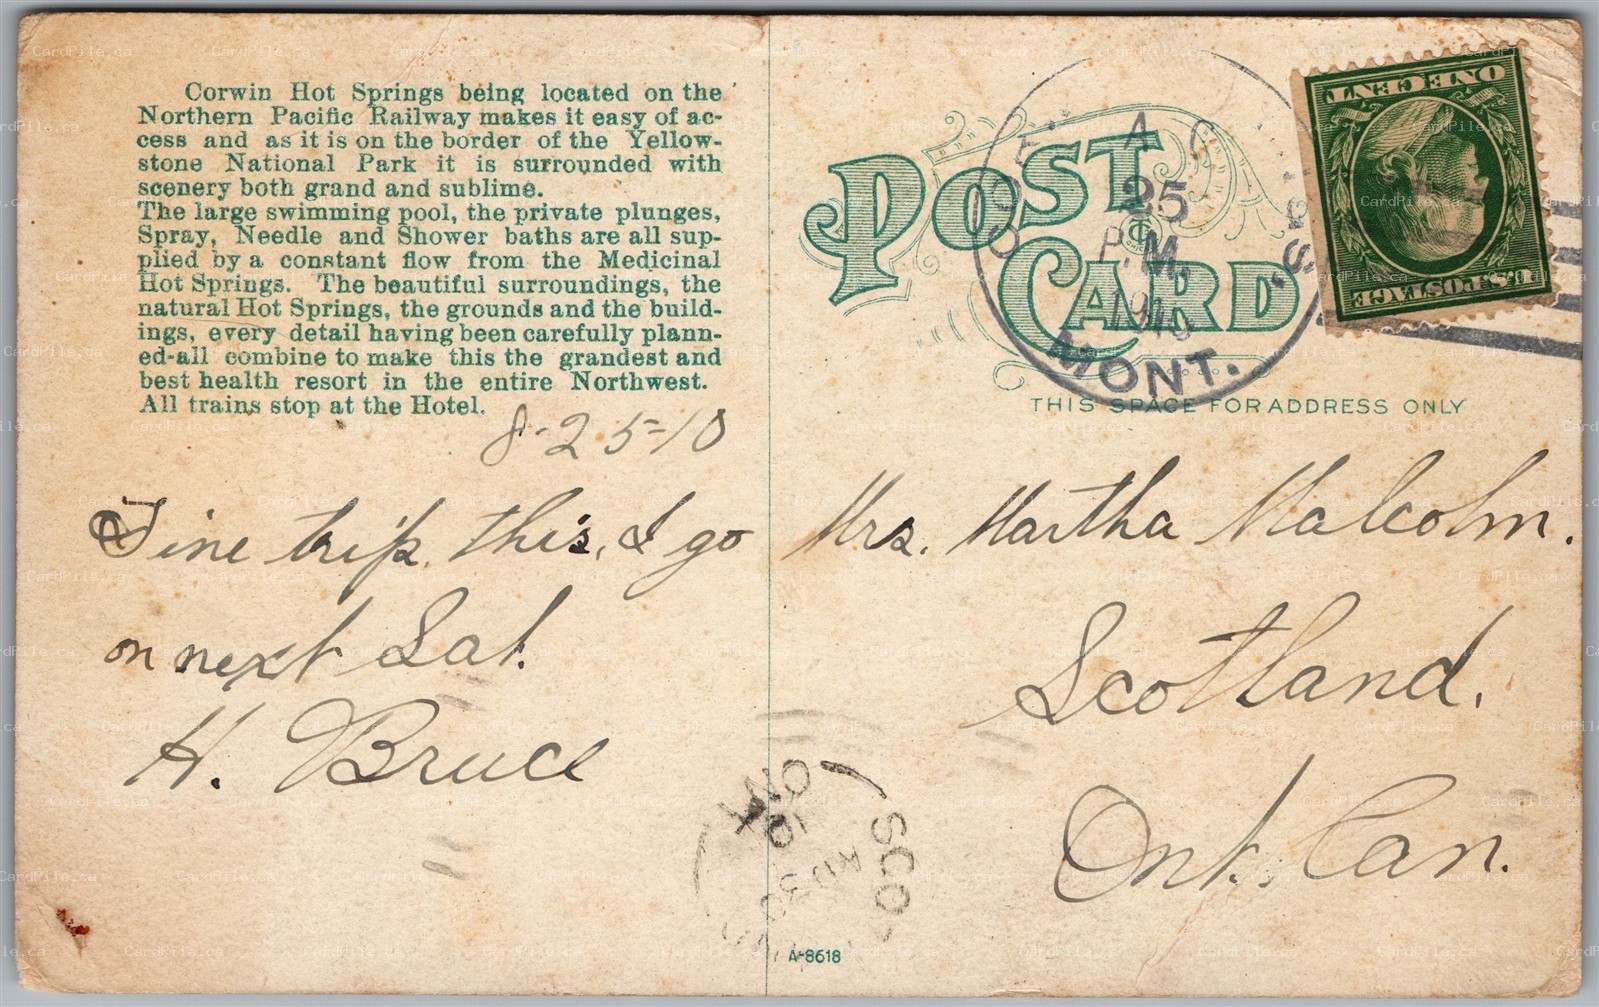 Corwin Hot Springs being located on the
Northern Pacific Railway makes it easy of ac-
cess and as it is on the border of the Yellow-
stone National Park it is surrounded with
scenery both grand and sublime.
The large swimming pool, the private plunges,
Spray, Needle and Shower baths are all sup-
plied by a constant flow from the Medicinal
Hot Springs. The beautiful surroundings, the
natural Hot Springs, the grounds and the build-
ings, every detail having been carefully plann-
ed-all combine to make this the grandest and
best health resort in the entire Northwest.
All trains stop at the Hotel.
8-25-10
Fine trip, this, I go
on next Sat.
H. Bruce
POST CARD
THIS SPACE FOR ADDRESS ONLY
25
P.M.
1910
MONT.
ONE CENT
U.S. POSTAGE
Mrs. Martha Malcolm.
Scotland.
Ont. Can.
ONT
SCO
30
10
A-8618
CardPile.ca